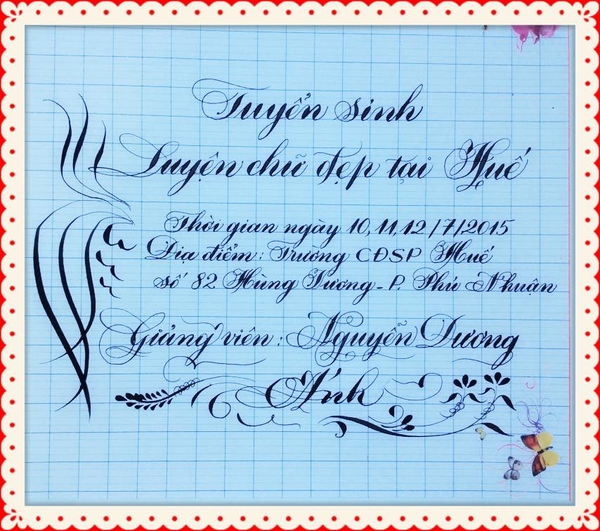 Tuyển sinh
Luyện chữ đẹp tại Huế
Thời gian ngày 10, 11, 12/7/2015
Địa điểm: Trường CĐSP Huế
số 82 Hùng Vương - P. Phú Nhuận
Giảng viên: Nguyễn Dương
Ánh